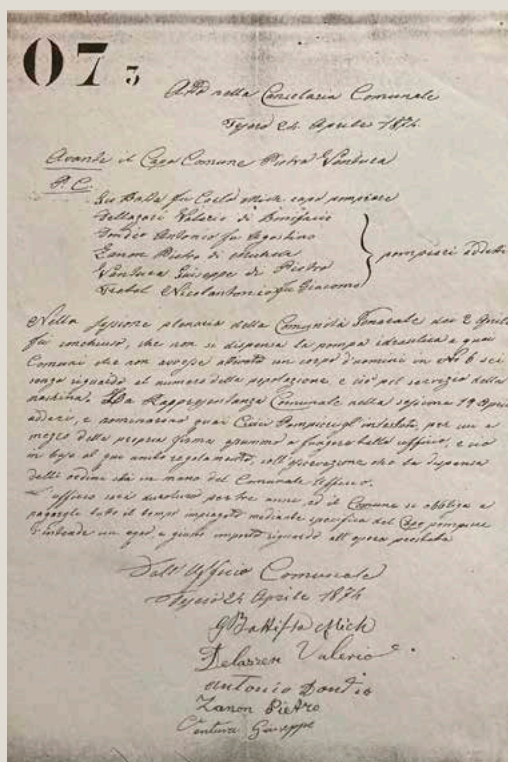 07 3
nella Cancelaria Comunale
Tesero 24 Aprile 1874
Avante il Capo Comune Pietro Ventura
P. C.
Gio Batta fu Carlo Mich capo pompiere
Dellazeri Valerio di Bonifacio
Dondio Antonio fu Agostino
Zanon Pietro di
Ventura Giuseppe di Pietro
Trabel Nicolantonio fu Giacomo
pompieri addetti
Nella sessione plenaria della Comunità Generale dei 2 Aprile
fu conchiuso, che non si dispensa la pompa idraulica a quei
Comuni che non avesse attivato un corpo d'uomini in No 6 sei
senza riguardo al numero della popolazione, e ciò pel servizio della
macchina. La Rappresentanza Comunale nella sessione 19 Aprile
e nominarono quai Civici Pompieri gl'intestati, per cui a
mezzo della propria firma a fungere tallo ufficio, e ciò
in base al qui unito regolamento, coll'osservazione che la dispensa
delli ordini sta in mano del Comunale Ufficio.
L'ufficio sarà duraturo per tre anni, ed il Comune si obbliga a
pagargli tutto il tempo impiegato mediante specifica del Capo pompiere
s'intende un equo, e giusto importo riguardo all'opera prestata
Dall'Ufficio Comunale
Tesero 24 Aprile 1874
G Battista Mich
Delazzeri Valerio
Antonio Dondio
Zanon Pietro
Ventura Giuseppe